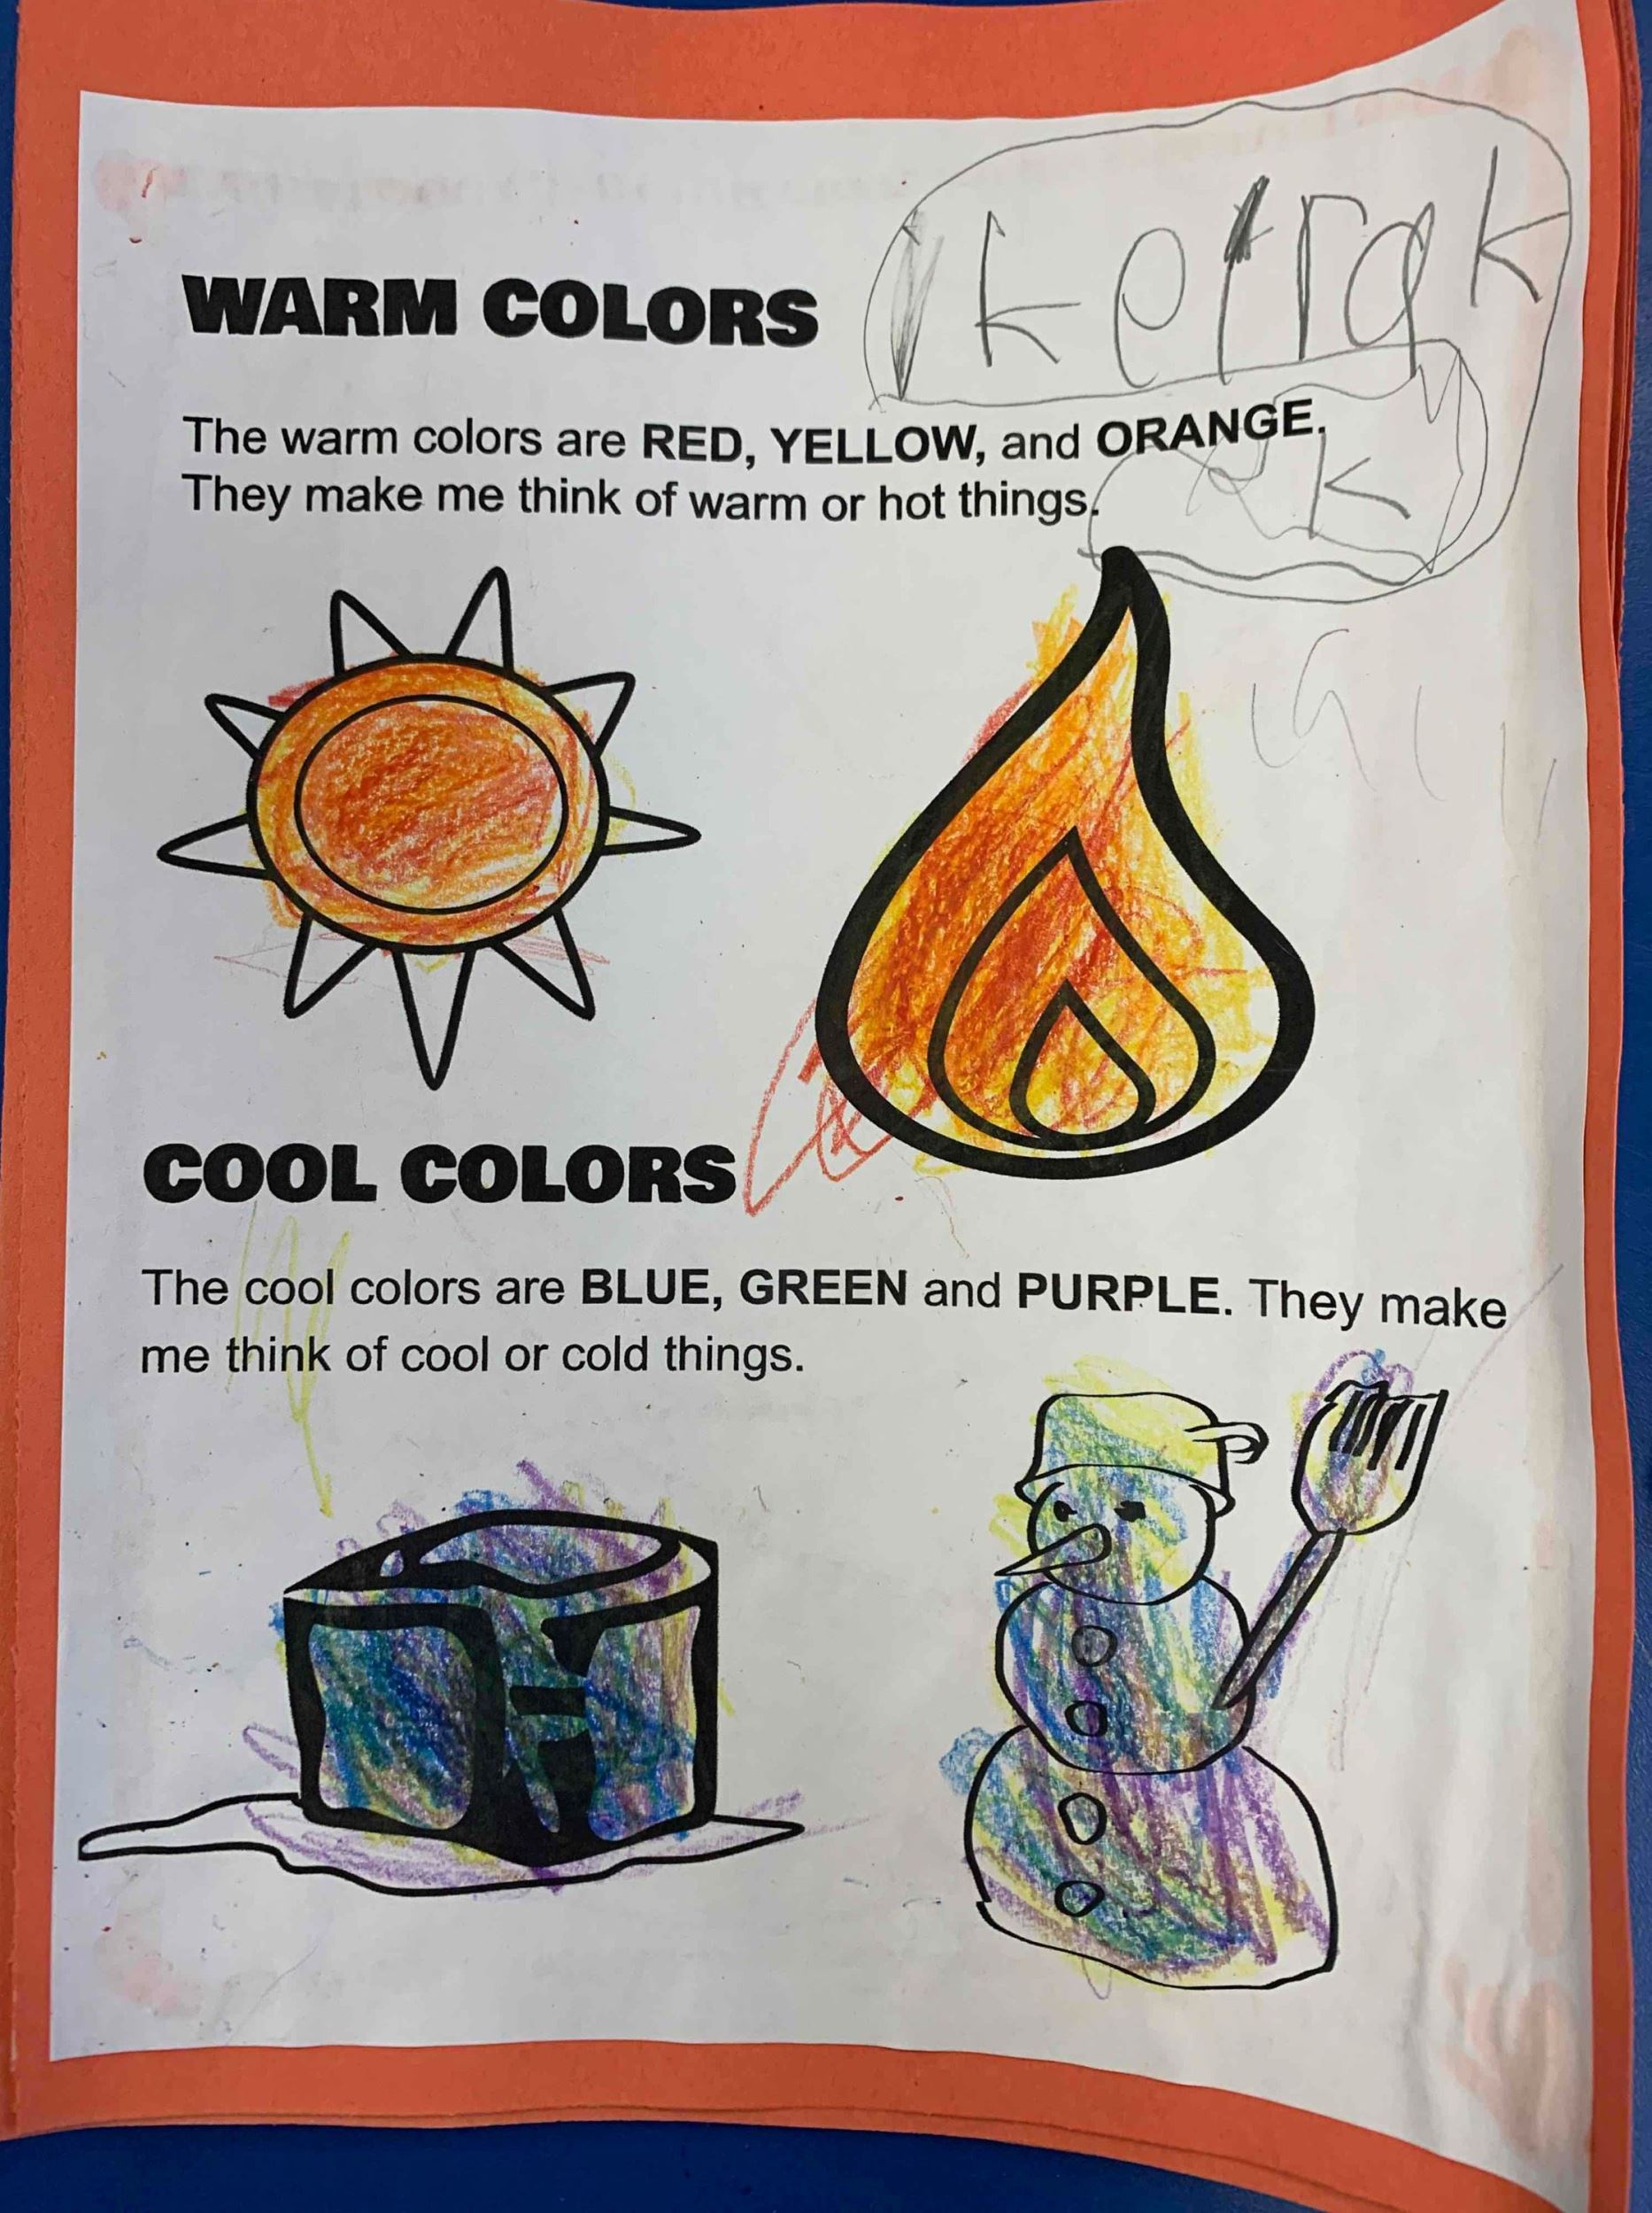 WARM COLORS
The warm colors are RED, YELLOW, and ORANGE.
They make me think of warm or hot things.
k
COOL COLORS
The cool colors are BLUE, GREEN and PURPLE. They make
me think of cool or cold things.